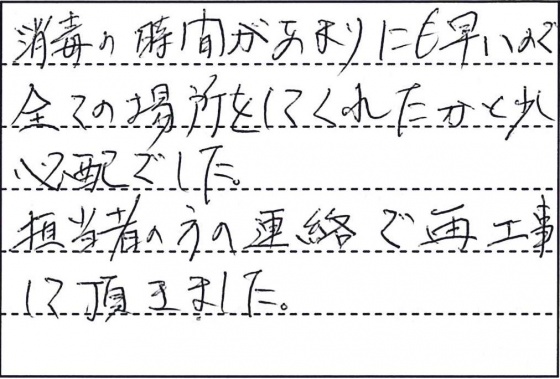 消毒の時間があまりにも早いので
全ての場所をしてくれたかと少
心配でした。
担当者の方の連絡で再工事
して頂きました。